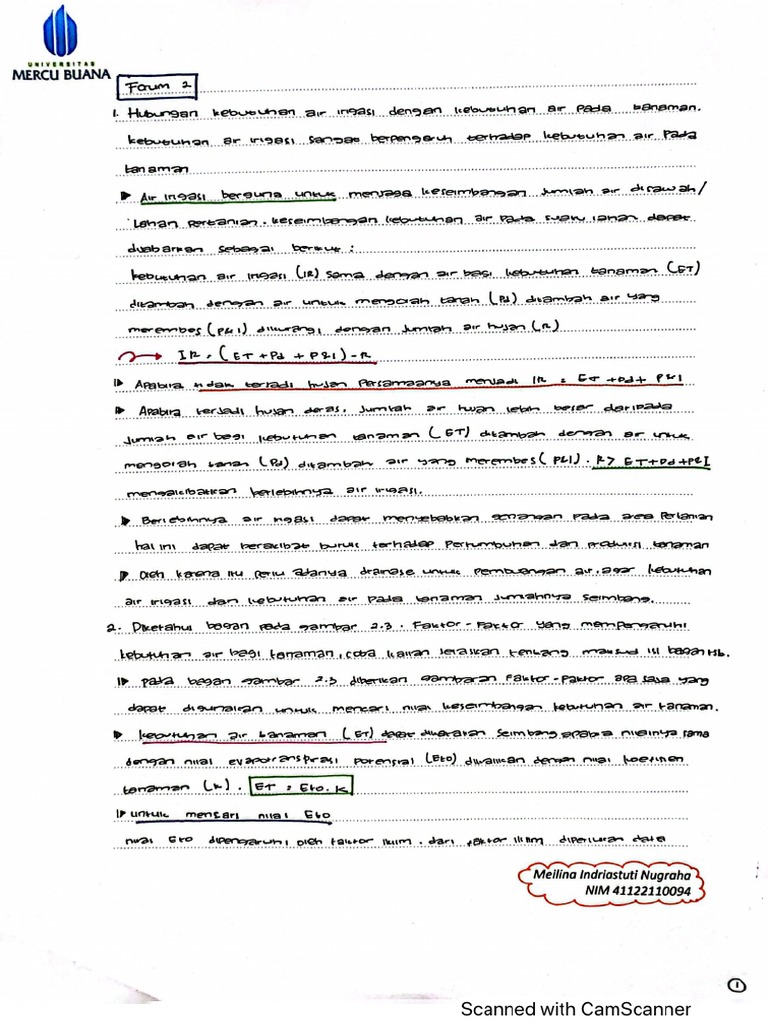 UNIVERSITAS
MERCU BUANA
Forum 2
1. Hubungan kebutuhan air irigasi dengan kebutuhan air pada tanaman.
kebutuhan air irigasi sangat berpengaruh terhadap kebutuhan air pada
tanaman
Air irigasi berguna untuk menjaga keseimbangan jumlah air disawah/
Lahan pertanian. keseimbangan kebutuhan air pada suatu lahan dapat
dijabarkan sebagai berikut :
kebutuhan air irigasi (IR) sama dengan air bagi kebutuhan tanaman (ET)
ditambah dengan air untuk mengolah tanah (Pd) ditambah air yang
merembes (P&I) dikurangi dengan jumlah air hujan (R)
IR = (ET + Pd + P&I) - R
Apabila tidak terjadi hujan Persamaanya menjadi IR = ET + Pd + P&I
Apabila terjadi hujan deras, Jumlah air hujan lebih besar daripada
Jumlah air bagi kebutuhan tanaman (ET) ditambah dengan air untuk
mengolah tanah (Pd) ditambah air yang merembes (P&I). R > ET+Pd+P&I
mengakibatkan berlebihnya air irigasi.
Berlebihnya air irigasi dapat menyebabkan genangan pada area Pertanian
hal ini dapat berakibat buruk terhadap Pertumbuhan dan produksi tanaman
Oleh karena itu perlu adanya drainase untuk pembuangan air, agar kebutuhan
air irigasi dan kebutuhan air pada tanaman jumlahnya seimbang.
2. Diketahui bagan pada gambar 2.3. Faktor-Faktor yang mempengaruhi
kebutuhan air bagi tanaman, coba kalian jelaskan tentang maksud isi bagan tsb.
pada bagan gambar 2.3 diberikan gambaran faktor-faktor apa saja yang
dapat digunakan untuk mencari nilai keseimbangan kebutuhan air tanaman.
kebutuhan air tanaman (ET) dapat dikatakan seimbang apabila nilainya sama
dengan nilai evapotranspirasi potensial (Eto) dikalikan dengan nilai koefisien
tanaman (k). ET = Eto.k
untuk mencari nilai Eto
nilai Eto dipengaruhi oleh faktor iklim. dari faktor iklim diperlukan data
Meilina Indriastuti Nugraha
NIM 41122110094
1
Scanned with CamScanner